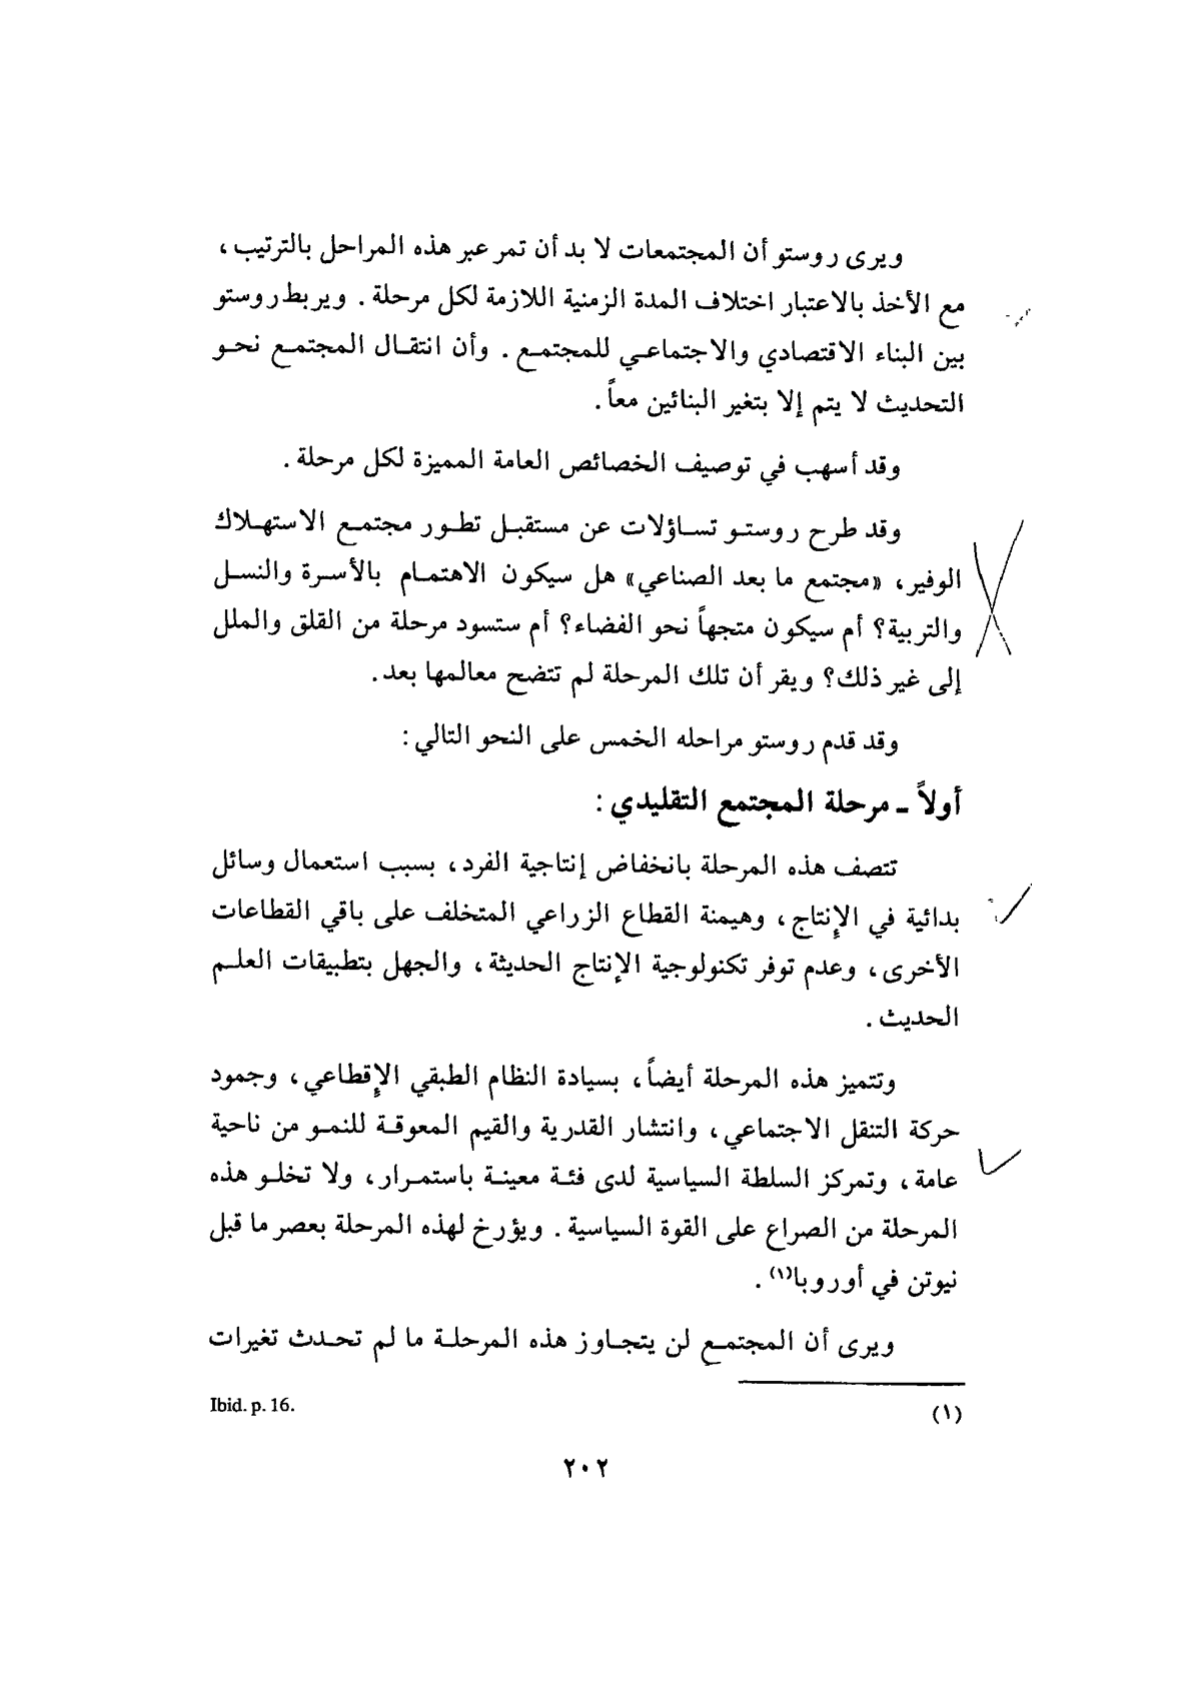 ويرى روستو أن المجتمعات لا بد أن تمر عبر هذه المراحل بالترتيب،
مع الأخذ بالاعتبار اختلاف المدة الزمنية اللازمة لكل مرحلة. ويربط روستو
بين البناء الاقتصادي والاجتماعي للمجتمع. وأن انتقال المجتمع نحو
التحديث لا يتم إلا بتغير البنائين معاً.
وقد أسهب في توصيف الخصائص العامة المميزة لكل مرحلة.
وقد طرح روستو تساؤلات عن مستقبل تطور مجتمع الاستهلاك
الوفير، «مجتمع ما بعد الصناعي» هل سيكون الاهتمام بالأسرة والنسل
والتربية؟ أم سيكون متجهاً نحو الفضاء؟ أم ستسود مرحلة من القلق والملل
إلى غير ذلك؟ ويقر أن تلك المرحلة لم تتضح معالمها بعد.
وقد قدم روستو مراحله الخمس على النحو التالي:
أولاً ـ مرحلة المجتمع التقليدي:
تتصف هذه المرحلة بانخفاض إنتاجية الفرد، بسبب استعمال وسائل
بدائية في الإنتاج، وهيمنة القطاع الزراعي المتخلف على باقي القطاعات
الأخرى، وعدم توفر تكنولوجية الإنتاج الحديثة، والجهل بتطبيقات العلم
الحديث.
وتتميز هذه المرحلة أيضاً، بسيادة النظام الطبقي الإقطاعي، وجمود
حركة التنقل الاجتماعي، وانتشار القدرية والقيم المعوقة للنمو من ناحية
عامة، وتمركز السلطة السياسية لدى فئة معينة باستمرار، ولا تخلو هذه
المرحلة من الصراع على القوة السياسية. ويؤرخ لهذه المرحلة بعصر ما قبل
نيوتن في أوروبا(١).
ويرى أن المجتمع لن يتجاوز هذه المرحلة ما لم تحدث تغيرات
(١) Ibid. p. 16.
٢٠٢